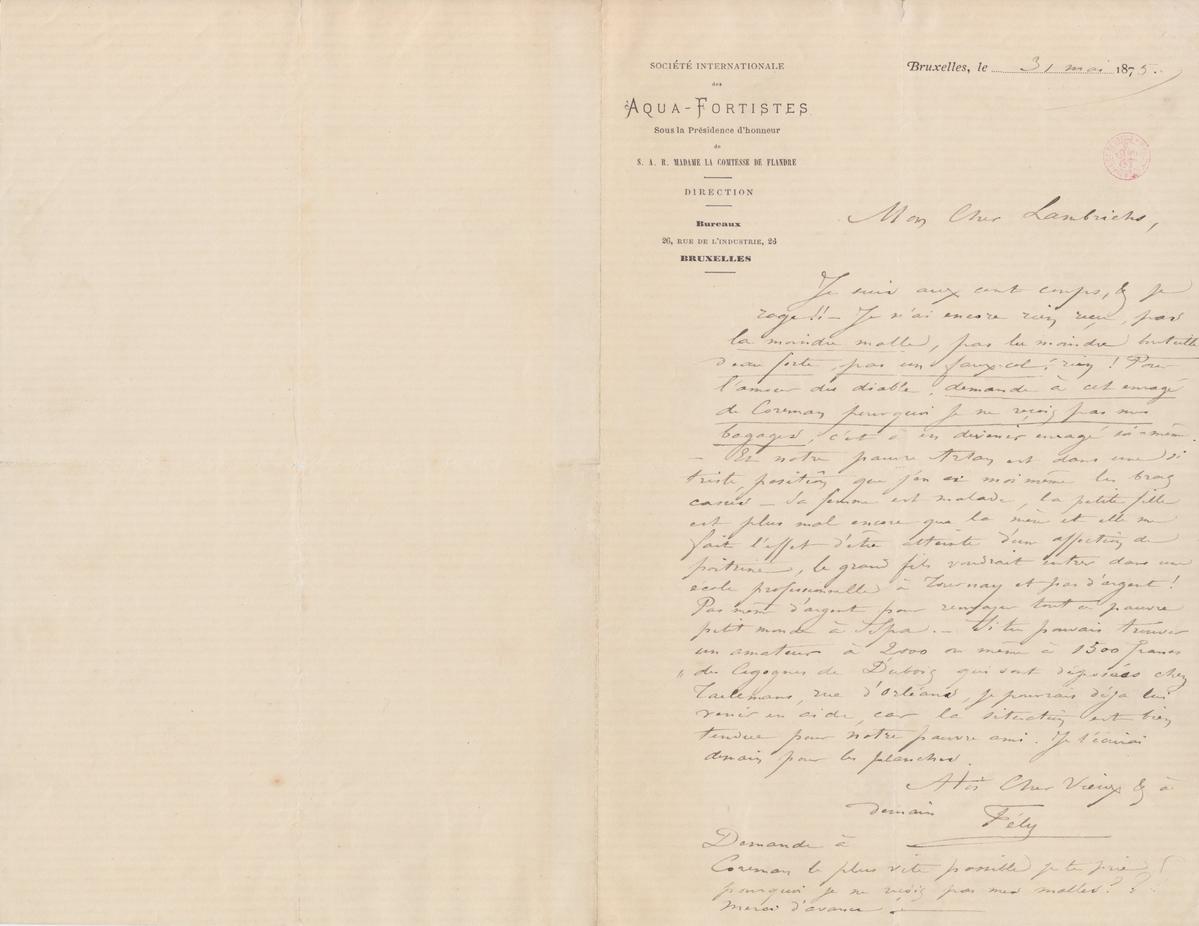 SOCIÉTÉ INTERNATIONALE
des
AQUA-FORTISTES
Sous la Présidence d'honneur
de
S. A. R. MADAME LA COMTESSE DE FLANDRE
DIRECTION
Bureaux
26, RUE DE L'INDUSTRIE, 26
BRUXELLES
Bruxelles, le 31 mai 1875.
Mon Cher Lambrichs,
Je suis aux cent coups, & je
rage !! — Je n'ai encore rien reçu, pas
la moindre malle, pas la moindre bouteille
d'eau forte, pas un faux-col ! rien ! Pour
l'amour du diable, demande à cet enragé
de Coreman pourquoi je ne reçois pas mes
bagages, c'est à en devenir enragé soi-même.
— Et notre pauvre Artan est dans une si
triste position que j'en ai moi même les bras
cassés — Sa femme est malade, la petite fille
est plus mal encore que la mère et elle me
fait l'effet d'être atteinte d'un affection de
poitrine, le grand fils voudrait entrer dans une
école professionnelle à Tournay et pas d'argent !
Pas même d'argent pour renvoyer tout ce pauvre
petit monde à Spa. — Si tu pouvais trouver
un amateur à 2000 ou même à 1500 francs
des Cigognes de Dubois qui sont déposées chez
Taelemans, rue d'Orléans, je pourrais déjà lui
venir en aide, car la situation est bien
tendue pour notre pauvre ami. Je t'écrirai
demain pour les planches.
A toi Cher Vieux & à
demain Fély
Demande à
Coreman le plus vite possible je te prie !
pourquoi je ne reçois pas mes malles ? ?
Merci d'avance